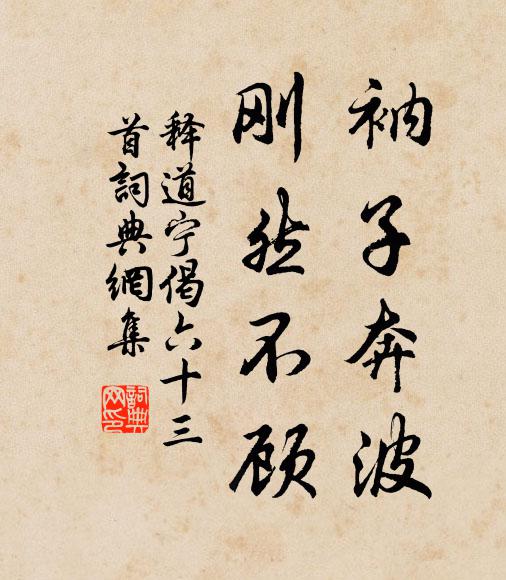 衲子奔波
刚然不顾
释道宁偈六十三
首词典網集
詞典
网印